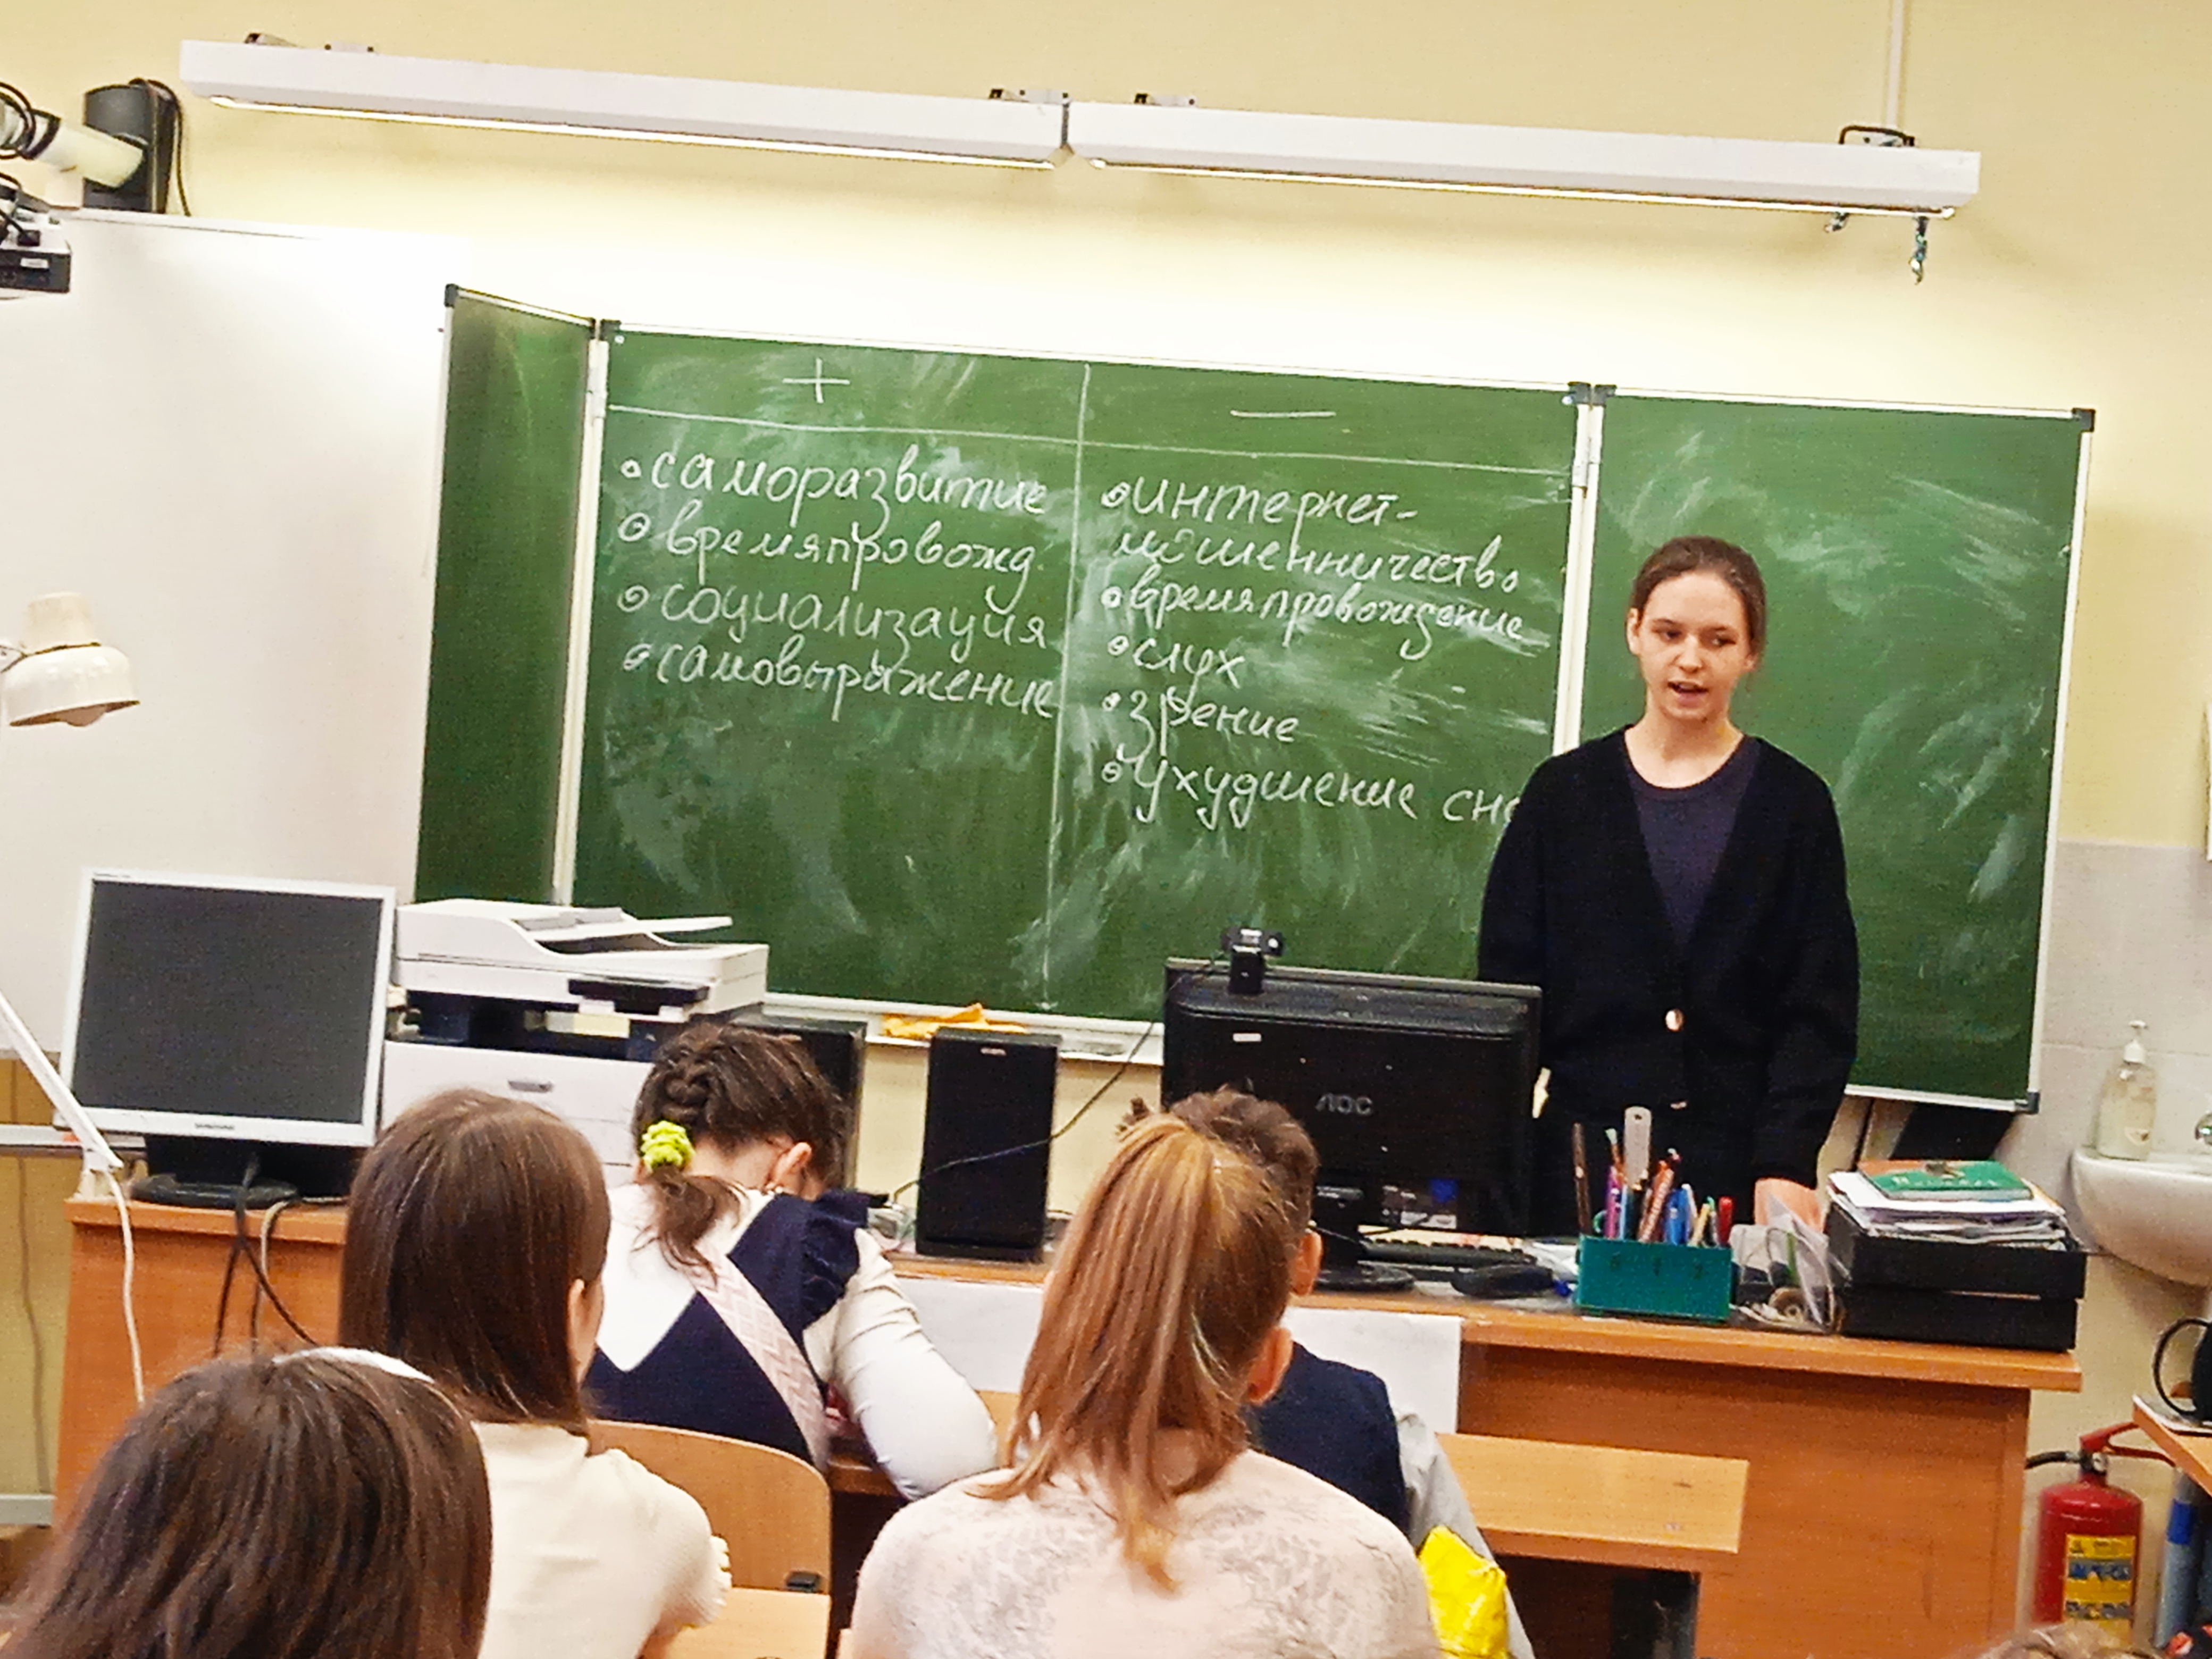 +
• саморазвитие
• времяпровожд.
• социализация
• самовыражение
—
• интернет-
мошенничество
• времяпровождение
• слух
• зрение
• ухудшение сна
AOC
SAMSUNG